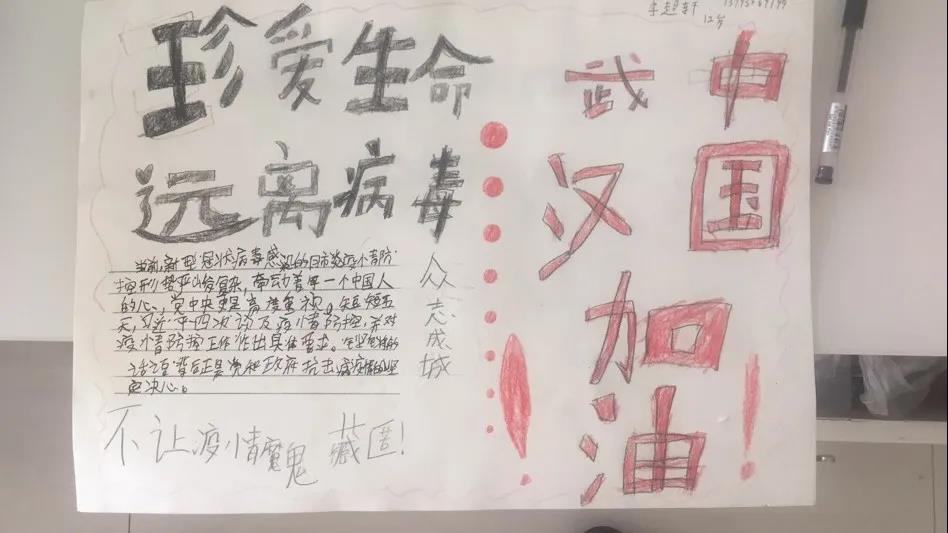 12岁
珍爱生命
远离病毒
当前,新型冠状病毒感染的肺炎疫情防
控形势严峻复杂,牵动着每一个中国人
的心,党中央更是高度重视。短短
天,习近平四次谈及疫情防控,并对
疫情防控工作作出具体要求。
背后正是党和政府抗击疫情的坚
定决心。
众志成城
不让疫情魔鬼藏匿!
武汉加油!
中国加油!